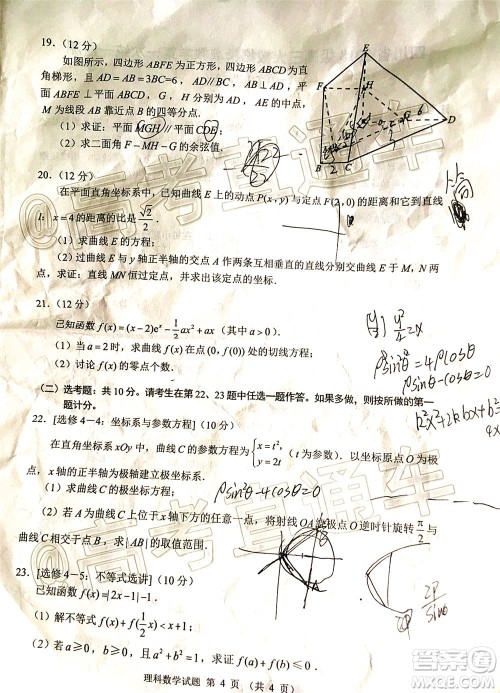 19.（12 分）
如图所示，四边形 ABFE 为正方形，四边形 ABCD 为直
角梯形，且 AD＝AB＝3BC=6，AD//BC，平面
ABFE⊥平面 ABCD，G，H 分别为 AD，AE 的中点，
M 为线段 AB 靠近点 B 的四等分点.
（1）求证：平面 MGH // 平面 CDE；
（2）求二面角 F－MH－G 的余弦值.
E
F
H
G
D
B
C
2
6
20.（12 分）
在平面直角坐标系中，已知曲线 E 上的动点 P(x, y) 与定点 F(2, 0) 的距离和它到直线
l：x＝4 的距离的比是 √2/2.
（1）求曲线 E 的方程；
（2）若曲线 E 与 y 轴正半轴的交点 A 作两条互相垂直的直线分别交曲线 E 于 M、N 两
点，证明：直线 MN 恒过定点，并求出该定点的坐标.
21.（12 分）
已知函数 f(x)＝(x－2)eˣ－½ax²＋ax（其中 a＞0）.
（1）当 a＝2 时，求曲线 f(x) 在点 (0, f(0)) 处的切线方程；
（2）讨论 f(x) 的零点个数.
（二）选考题：共 10 分。请考生在第 22、23 题中任选一题作答。如果多做，则按所做的第一
题计分。
22. [选修 4－4：坐标系与参数方程]（10 分）
在直角坐标系 xOy 中，曲线 C 的参数方程为{x＝t², y＝2t（t 为参数）. 以坐标原点 O 为极
点，x 轴的正半轴为极轴建立极坐标系.
（1）求曲线 C 的极坐标方程；
ρsin²θ-4cosθ=0
（2）若点 A 为曲线 C 上位于 x 轴下方的任意一点，将射线 OA 绕极点 O 逆时针旋转 π/2 与
曲线 C 相交于点 B，求 |AB| 的取值范围.
23. [选修 4－5：不等式选讲]（10 分）
已知函数 f(x)＝|2x－1|－1.
（1）解不等式 f(x)＋f(½x)＜x＋1；
（2）若 a²＋b²＝1，求证：f(a)＋f(b)≤2√2.
理科数学试题 第 4 页 （共 4 页）
y²/4=x
ρsin²θ=4ρcosθ